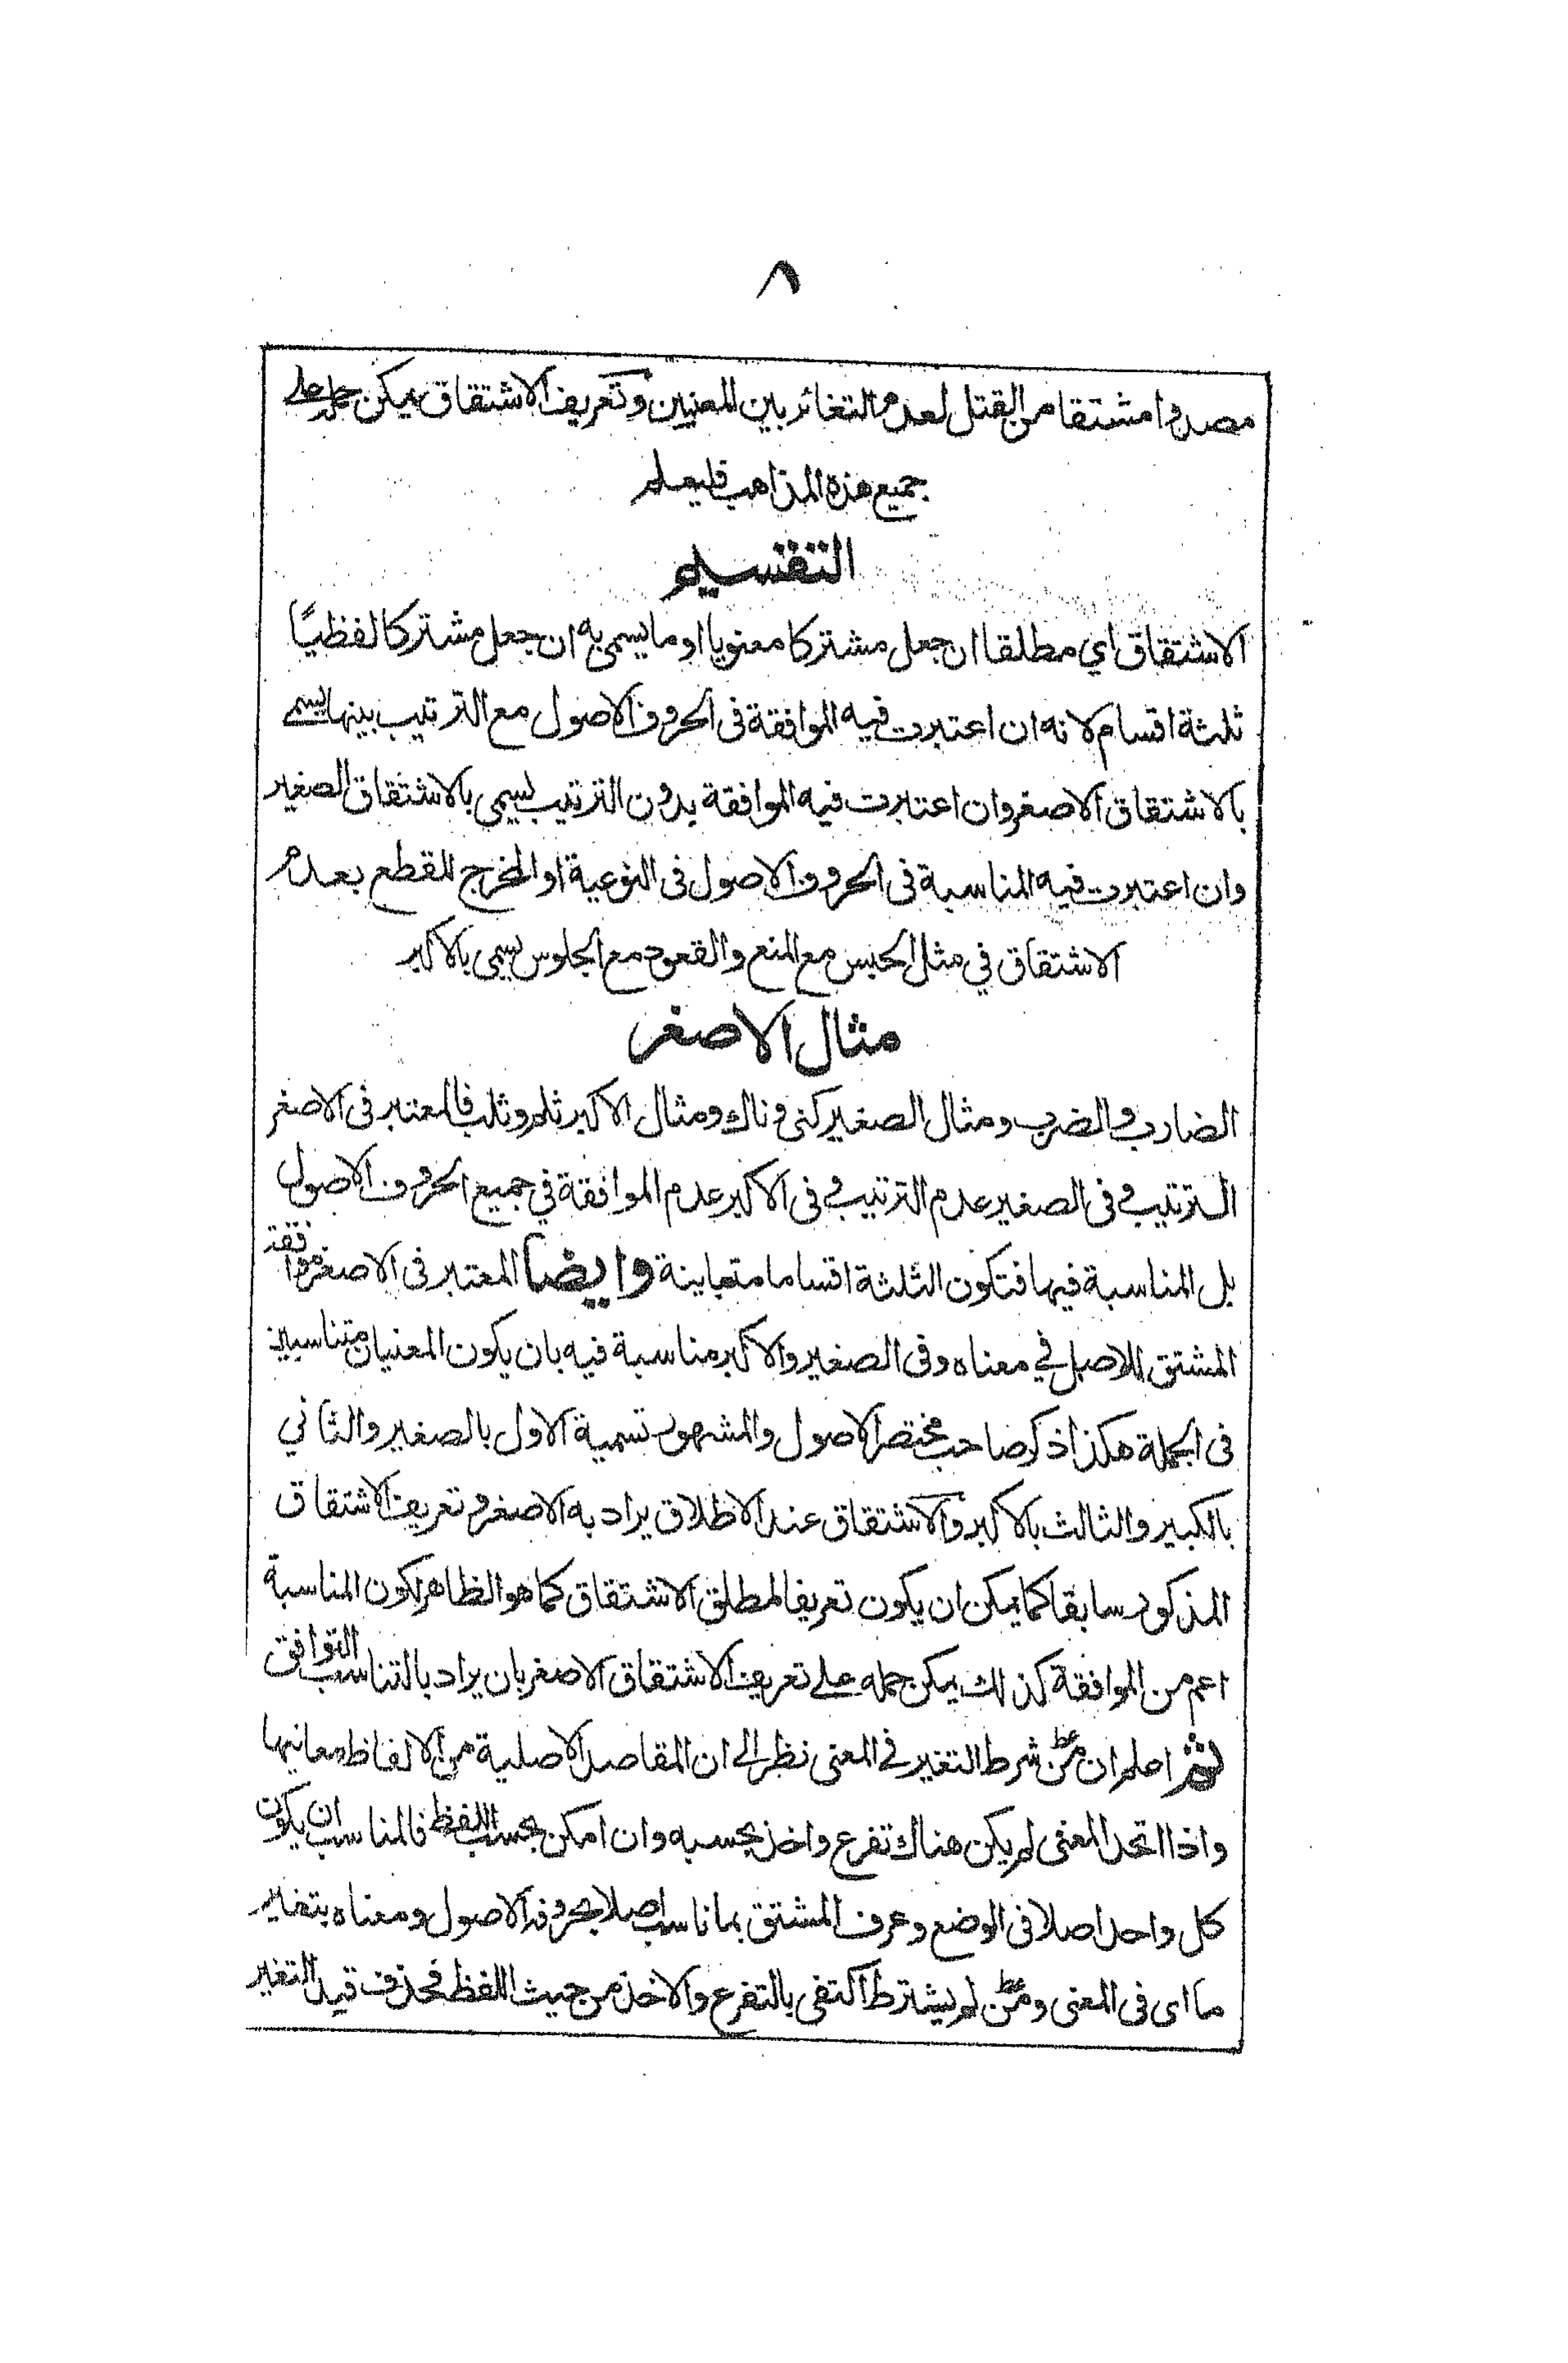 ٨
مصدرا مشتقا من القتل لعدم التغائر بين المعنيين وتعريف الاشتقاق يمكن حمله على
جميع هذه المذاهب فليعلم
التقسيم
الاشتقاق اي مطلقا ان جعل مشتركا معنويا او ما يسمى به ان جعل مشتركا لفظيًا
ثلثة اقسام لانه ان اعتبرت فيه الموافقة فى الحروف الاصول مع الترتيب بينها يسمى
بالاشتقاق الاصغر وان اعتبرت فيه الموافقة بدون الترتيب يسمى بالاشتقاق الصغير
وان اعتبرت فيه المناسبة فى الحروف الاصول فى النوعية او المخرج للقطع بعدم
الاشتقاق في مثل الحبس مع المنع والقعود مع الجلوس يسمى بالاكبر
مثال الاصغر
الضارب والضرب ومثال الصغير كنى وناك ومثال الاكبر ثلم وثلب فالمعتبر فى الاصغر
الترتيب وفى الصغير عدم الترتيب وفى الاكبر عدم الموافقة في جميع الحروف الاصول
بل المناسبة فيها فتكون الثلثة اقساما متباينة وايضا المعتبر فى الاصغر موافقة
المشتق للاصل في معناه وفى الصغير والاكبر مناسبة فيه بان يكون المعنيان متناسبين
فى الجملة هكذا ذكر صاحب مختصر الاصول والمشهور تسمية الاول بالصغير والثاني
بالكبير والثالث بالاكبر والاشتقاق عند الاطلاق يراد به الاصغر وتعريف الاشتقاق
المذكور سابقا كما يمكن ان يكون تعريفا لمطلق الاشتقاق كما هو الظاهر لكون المناسبة
اعم من الموافقة كذلك يمكن حمله على تعريف الاشتقاق الاصغر بان يراد بالتناسب التوافق
ثم اعلم ان من شرط التغير فى المعنى نظر الى ان المقاصد الاصلية من الالفاظ معانيها
واذا اتحد المعنى لم يكن هناك تفرع واخذ بحسبه وان امكن بحسب اللفظ فالمناسب ان يكون
كل واحد اصلا فى الوضع وعرف المشتق بما ناسب اصلا بحروفه الاصول ومعناه بتغاير
ما اى فى المعنى ومن لم يشترط اكتفى بالتفرع والاخذ من حيث اللفظ فحذف قيد التغير